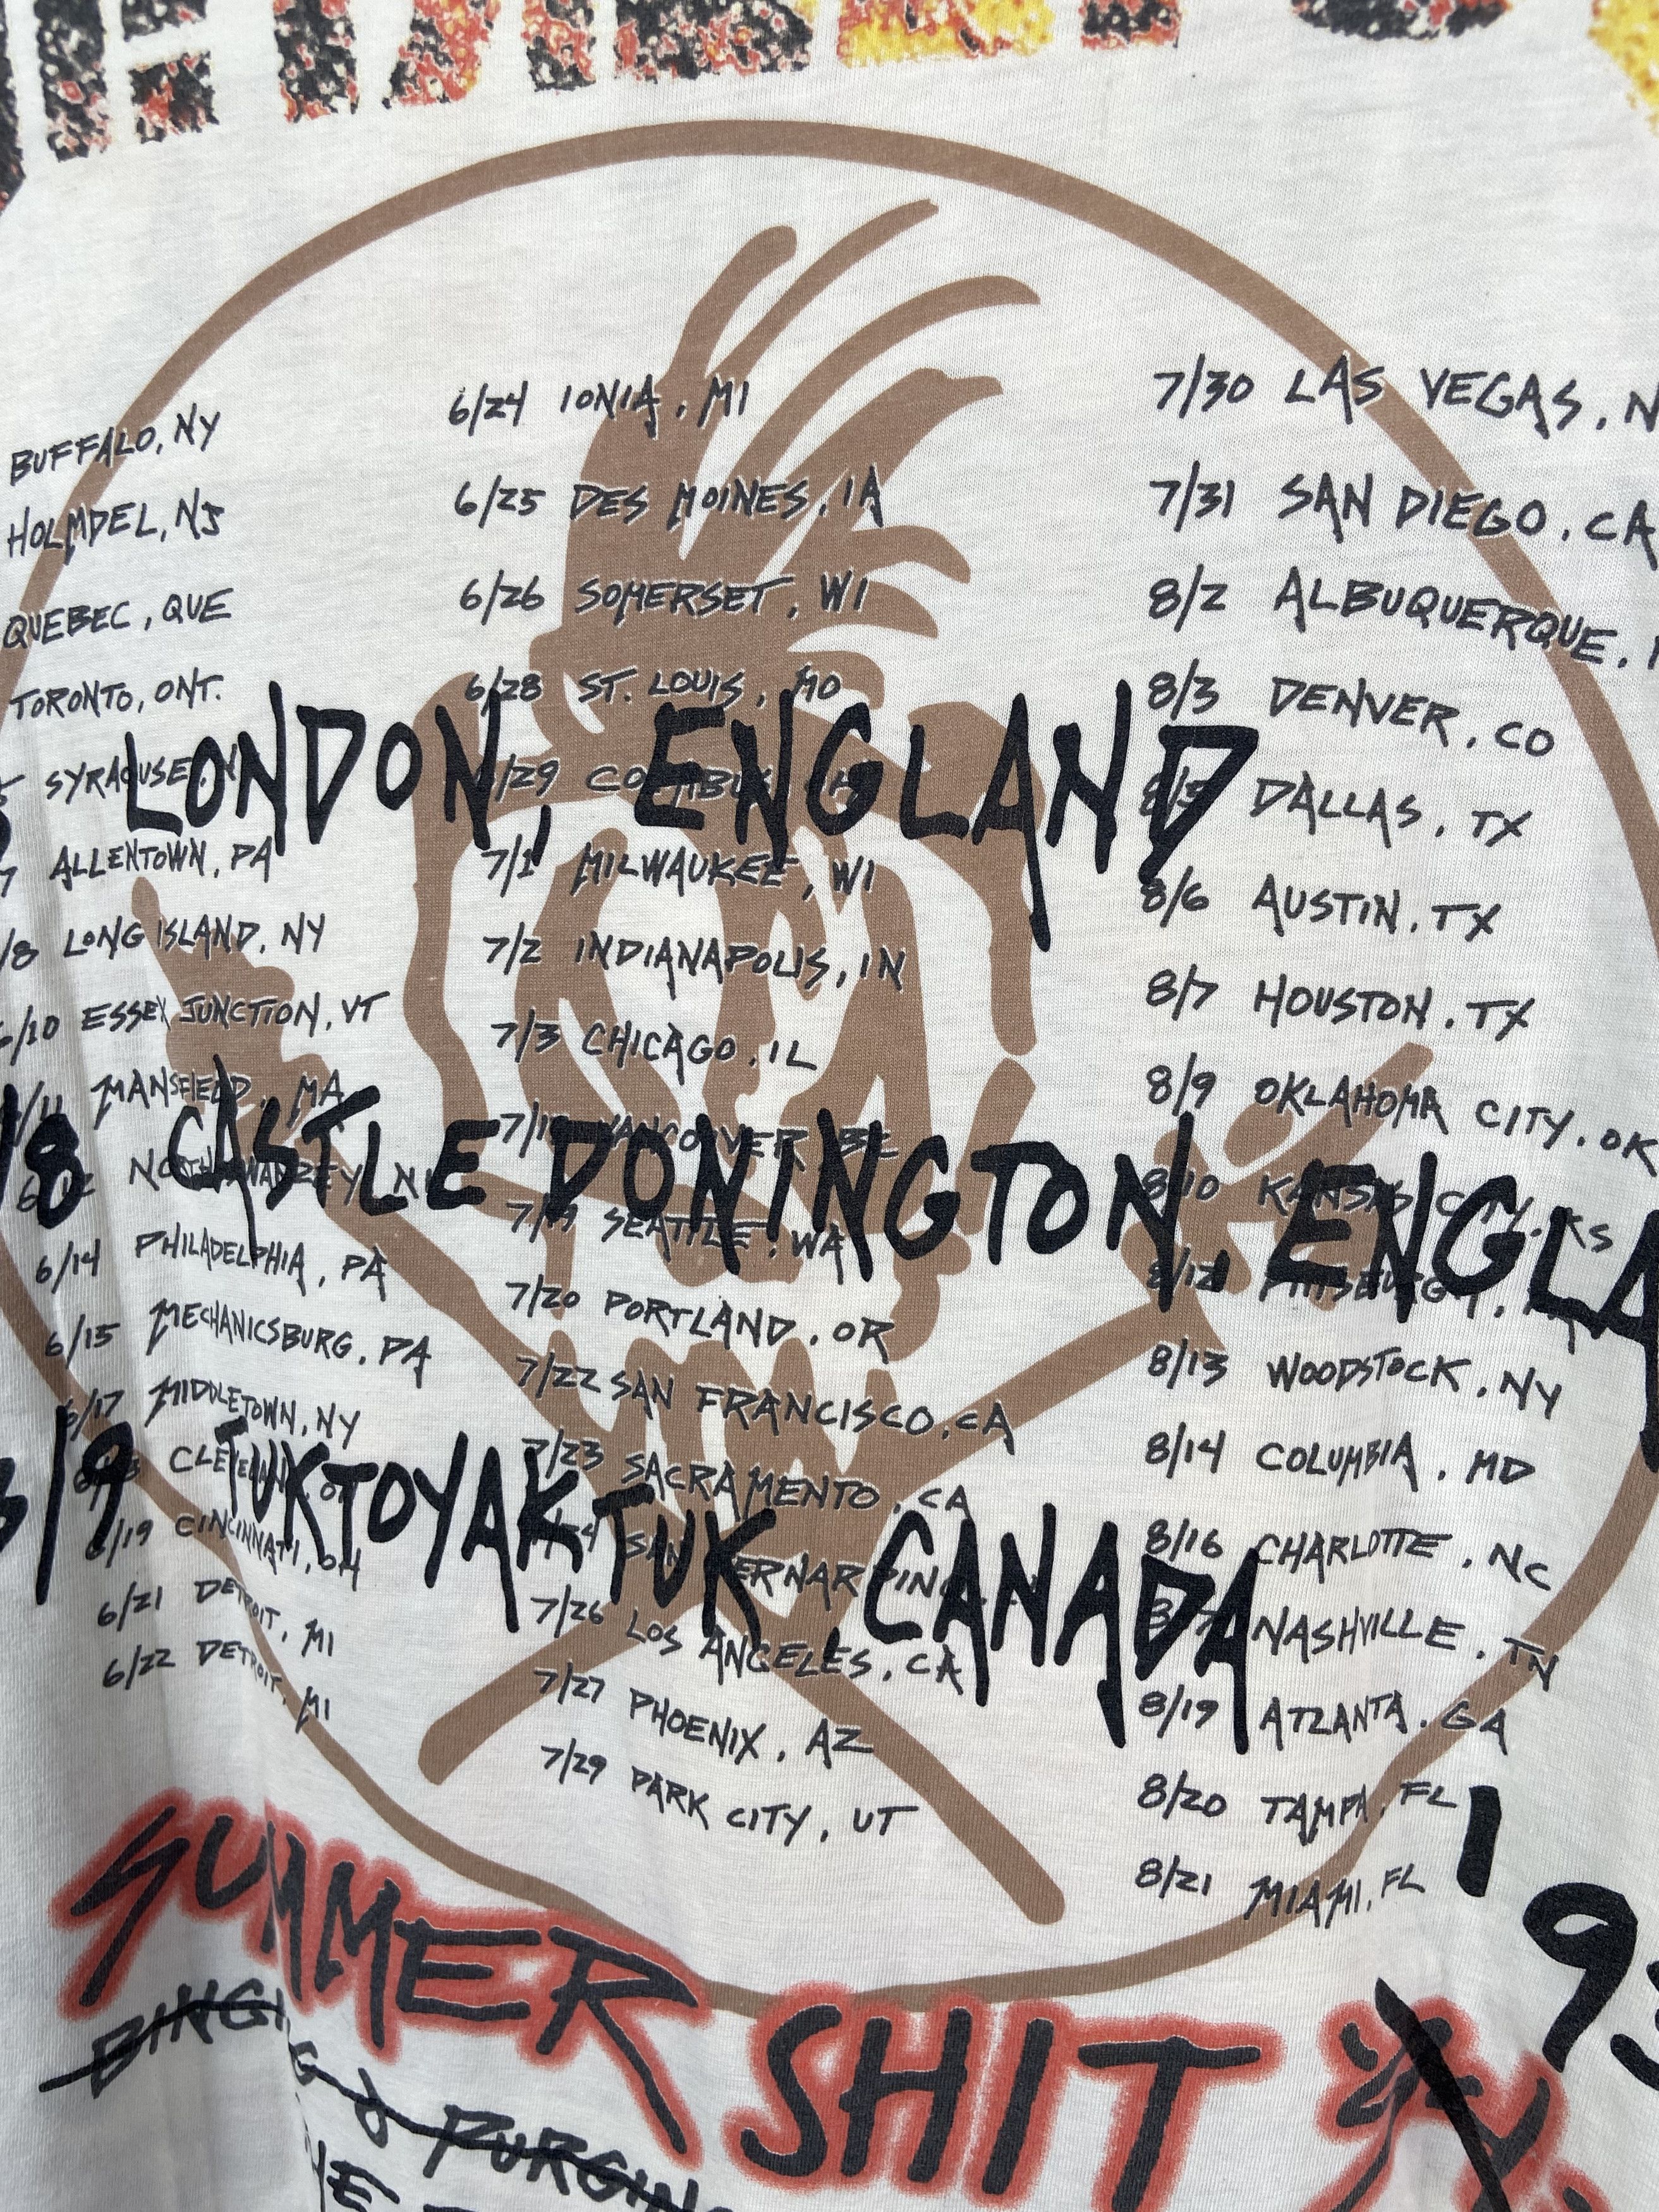 BUFFALO, NY
HOLMDEL, NJ
QUEBEC, QUE
TORONTO, ONT.
SYRACUSE,
ALLENTOWN, PA
/8 LONG ISLAND, NY
6/10 ESSEX JUNCTION, VT
/11 MANSFIELD, MA
6/12
6/14 PHILADELPHIA, PA
6/15 MECHANICSBURG, PA
6/17 MIDDLETOWN, NY
CLEVELAND, OH
6/19 CINCINNATI, OH
6/21 DETROIT, MI
6/22 DETROIT, MI
6/24 IONIA, MI
6/25 DES MOINES, IA
6/26 SOMERSET, WI
6/28 ST. LOUIS, MO
6/29 COLUMBUS, OH
7/1 MILWAUKEE, WI
7/2 INDIANAPOLIS, IN
7/3 CHICAGO, IL
VANCOUVER, BC
7/19 SEATTLE, WA
7/20 PORTLAND, OR
7/22 SAN FRANCISCO, CA
7/23 SACRAMENTO, CA
SAN BERNARDINO,
7/26 LOS ANGELES, CA
7/27 PHOENIX, AZ
7/29 PARK CITY, UT
7/30 LAS VEGAS, N
7/31 SAN DIEGO, CA
8/2 ALBUQUERQUE,
8/3 DENVER, CO
8/5 DALLAS, TX
8/6 AUSTIN, TX
8/7 HOUSTON, TX
8/9 OKLAHOMA CITY, OK
8/10 KANSAS CITY, KS
8/12 PITTSBURGH,
8/13 WOODSTOCK, NY
8/14 COLUMBIA, MD
8/16 CHARLOTTE, NC
NASHVILLE, TN
8/19 ATLANTA, GA
8/20 TAMPA, FL
8/21 MIAMI, FL
LONDON, ENGLAND
/8 CASTLE DONINGTON, ENGLA
3/9 TUKTOYAKTUK, CANADA
SUMMER SHIT
'93
BINGING & PURGING